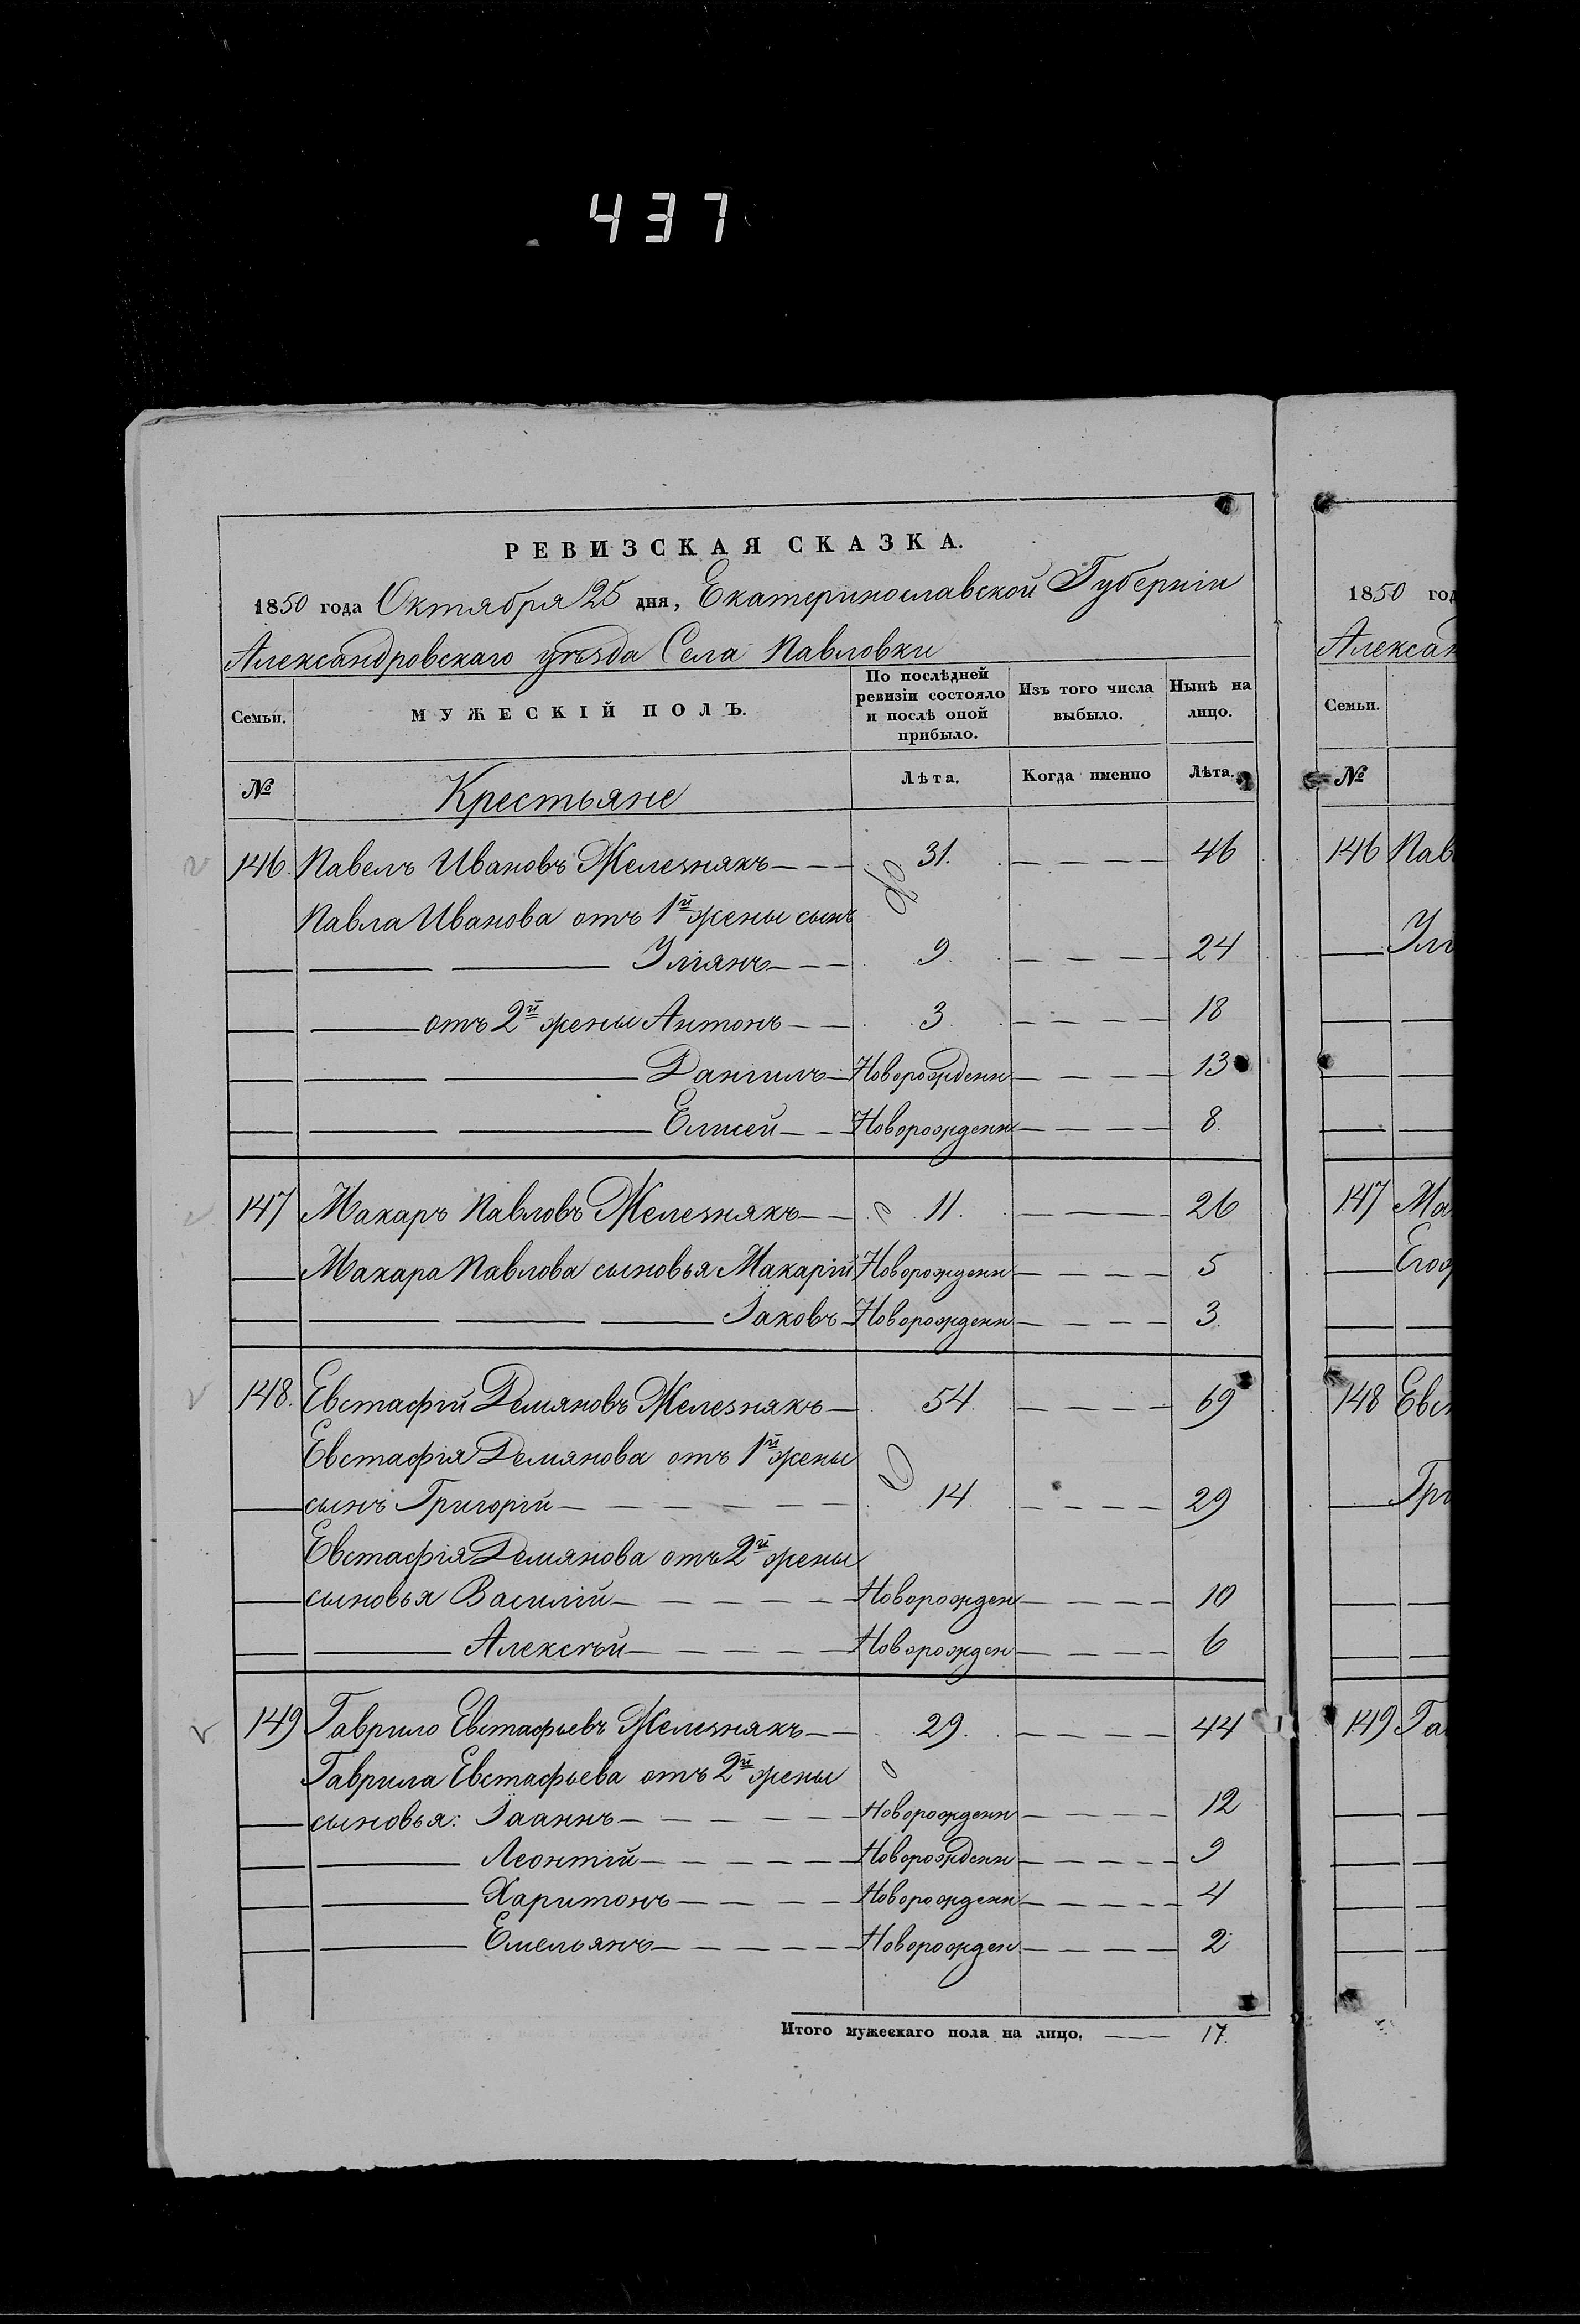 437
РЕВИЗСКАЯ СКАЗКА.
1850 года Октября 25 дня, Екатеринославской Губерніи
Александровскаго уѣзда Села Павловки
Семьи. МУЖЕСКІЙ ПОЛЪ. По послѣдней ревизіи состояло и послѣ оной прибыло. Изъ того числа выбыло. Нынѣ на лицо.
№ Крестьяне Лѣта. Когда именно Лѣта.
146. Павелъ Ивановъ Железнякъ 31. 46
Павла Иванова отъ 1й жены сынъ
Уліянъ 9. 24
отъ 2й жены Антонъ 3. 18
Даніилъ Новорожденн 13
Елисей Новорожденн 8.
147 Макаръ Павловъ Железнякъ 11. 26
Макара Павлова сыновья Макарій Новорожденн 5
Іаковъ Новорожденн 3.
148. Евстафій Демяновъ Железнякъ 54 69
Евстафія Демянова отъ 1й жены
сынъ Григорій 14 29
Евстафія Демянова отъ 2й жены
сыновья Василій Новорожден 10
Алексѣй Новорожден 6
149 Гаврило Евстафьевъ Железнякъ 29. 44
Гаврила Евстафьева отъ 2й жены
сыновья: Іоаннъ Новорожденн 12
Леонтій Новорожденн 9
Харитонъ Новорожденн 4
Емельянъ Новорожден 2
Итого мужескаго пола на лицо, 17.
1850 год
Алексан
Семьи.
№
146 Пав
Улі
147 Ма
Его
148 Евс
Гри
149 Га